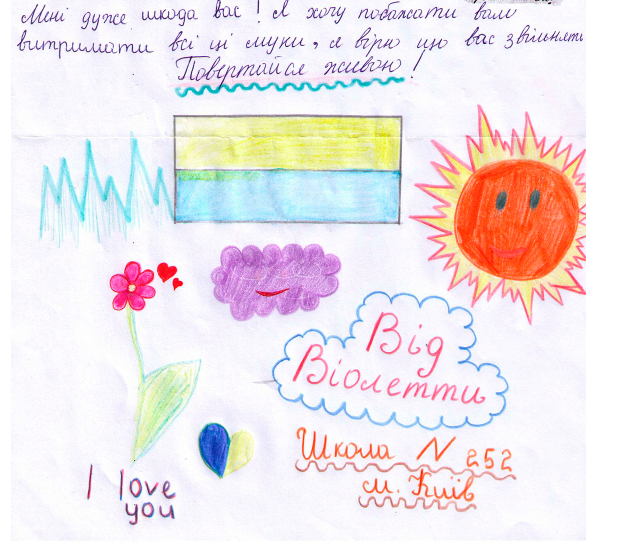 Мені дуже шкода вас! Я хочу побажати вам
витримати всі ці муки, я вірю що вас звільнять
Повертайся живою!
Від
Віолетти
I love
you
Школа N 252
м. Київ